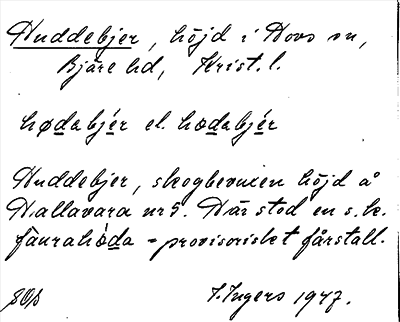 Huddebjer, höjd i Hovs sn,
Bjäre hd, Krist. l.
hødabjér el. hodabjér
Huddebjer, skogbevuxen höjd å
Hallavara nr 5. Här stod en s.k.
faurahoda = provisoriskt fårstall.
I. Ingers 1947.